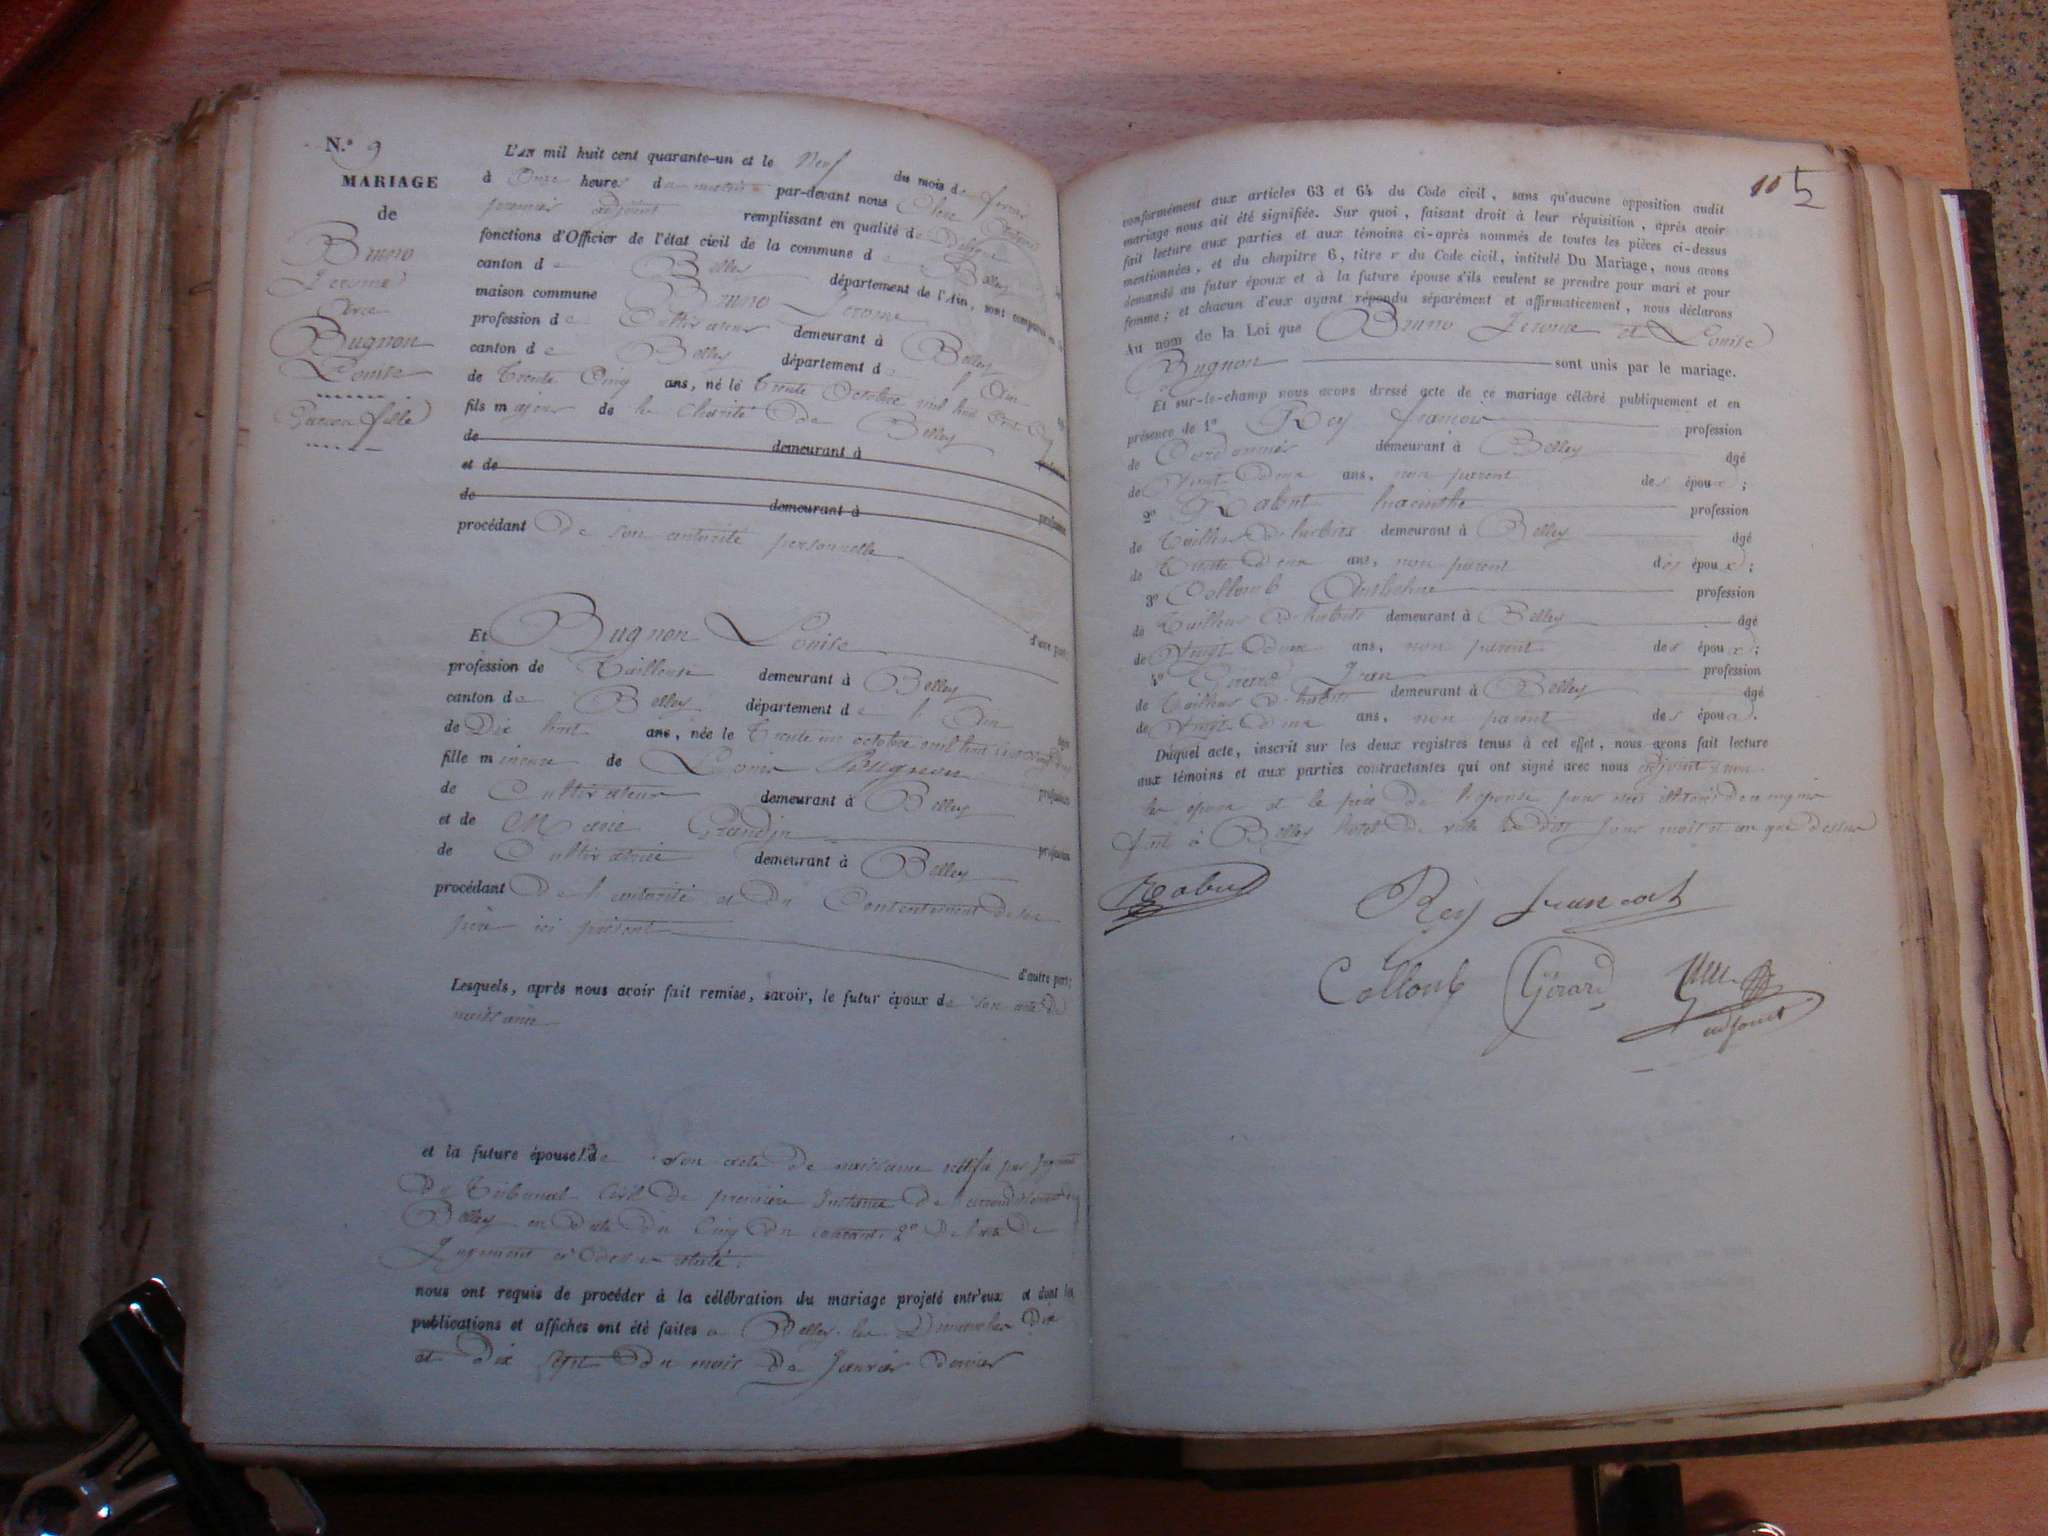 N.° 9
MARIAGE
de
Bruno
Jerome
avec
Bugnon
Louise
Garcon fille
L'AN mil huit cent quarante-un et le Neuf du mois de fevrier
à Onze heures du matin par-devant nous
premier adjoint remplissant en qualité de Délégué
fonctions d'Officier de l'état civil de la commune de Belley
canton de Belley département de l'Ain, sont comparus en la
maison commune Bruno Jerome
profession de Cultivateur demeurant à Belley
canton de Belley département de l'Ain
de trente Cinq ans, né le trente Octobre mil huit cent Cinq
fils majeur de la Charité de Belley
de demeurant à
et de profession
de demeurant à
procédant de son autorité personnelle
d'une part;
Et Bugnon Louise
profession de Tailleuse demeurant à Belley
canton de Belley département de l'Ain âgée
de Dix huit ans, née le trente un octobre mil huit cent vingt deux
fille mineure de Louis Bugnon profession
de Cultivateur demeurant à Belley
et de Marie Grandjin profession
de Cultivatrice demeurant à Belley
procédant de l'autorité et du Consentement de son
père ici présent
d'autre part;
Lesquels, après nous avoir fait remise, savoir, le futur époux de son acte de
naissance
et la future épouse 1° de son acte de naissance rectifié par jugement
du Tribunal Civil de première Instance de l'arrondissement de
Belley en date du Cinq du courant 2° de l'acte de
Jugement ci dessus relaté.
nous ont requis de procéder à la célébration du mariage projeté entr'eux et dont les
publications et affiches ont été faites a Belley les Dimanches Dix
et dix sept du mois de Janvier dernier
10 5
conformément aux articles 63 et 64 du Code civil, sans qu'aucune opposition audit
mariage nous ait été signifiée. Sur quoi, faisant droit à leur réquisition, après avoir
fait lecture aux parties et aux témoins ci-après nommés de toutes les pièces ci-dessus
mentionnées, et du chapitre 6, titre v du Code civil, intitulé Du Mariage, nous avons
demandé au futur époux et à la future épouse s'ils veulent se prendre pour mari et pour
femme; et chacun d'eux ayant répondu séparément et affirmativement, nous déclarons
Au nom de la Loi que Bruno Jerome et Louise
Bugnon sont unis par le mariage.
Et sur-le-champ nous avons dressé acte de ce mariage célébré publiquement et en
présence de 1° Rey francois profession
de Cordonnier demeurant à Belley âgé
de Vingt deux ans, non parent des époux;
2° Rabut hiacinthe profession
de Tailleur d'habits demeurant à Belley âgé
de Trente deux ans, non parent des époux;
3° Collomb Anthelme profession
de Tailleur d'habits demeurant à Belley âgé
de Vingt deux ans, non parent des époux;
4° Girard Jean profession
de Tailleur d'habits demeurant à Belley âgé
de Vingt deux ans, non parent des époux.
Duquel acte, inscrit sur les deux registres tenus à cet effet, nous avons fait lecture
aux témoins et aux parties contractantes qui ont signé avec nous adjoint, non
les époux et le père de l'épouse pour être illitérés de ce requis
fait à Belley hotel de ville les dits jour mois et an que dessus
Rabut
Rey francois
Collomb Gérard
adjoint